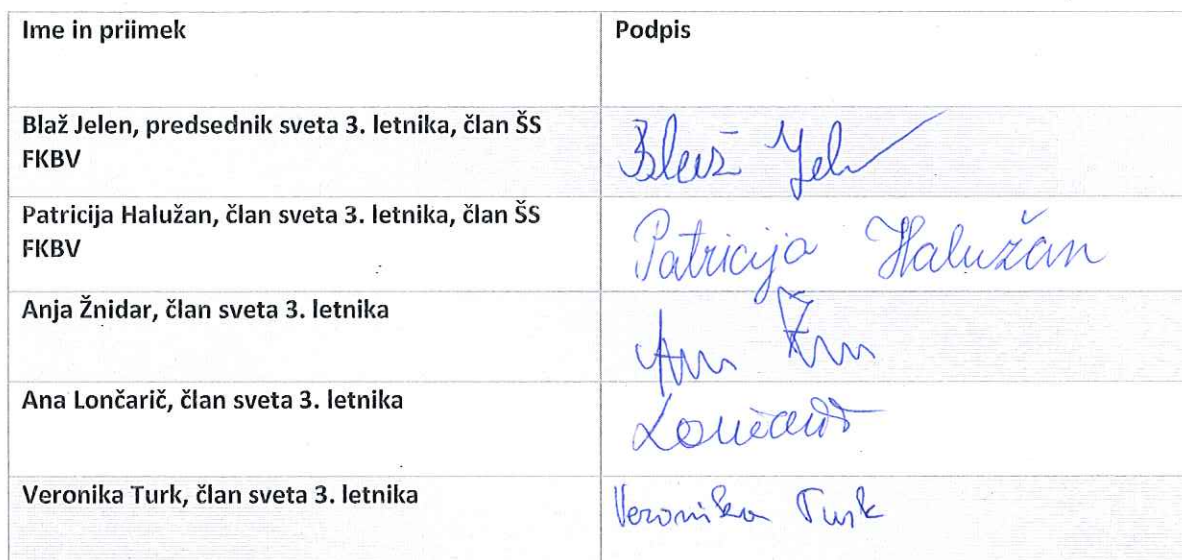 Ime in priimek Podpis
Blaž Jelen, predsednik sveta 3. letnika, član ŠS
FKBV
Blaž Jel
Patricija Halužan, član sveta 3. letnika, član ŠS
FKBV
Patricija Halužan
Anja Žnidar, član sveta 3. letnika
Ana Lončarič, član sveta 3. letnika
Veronika Turk, član sveta 3. letnika
Veronika Turk